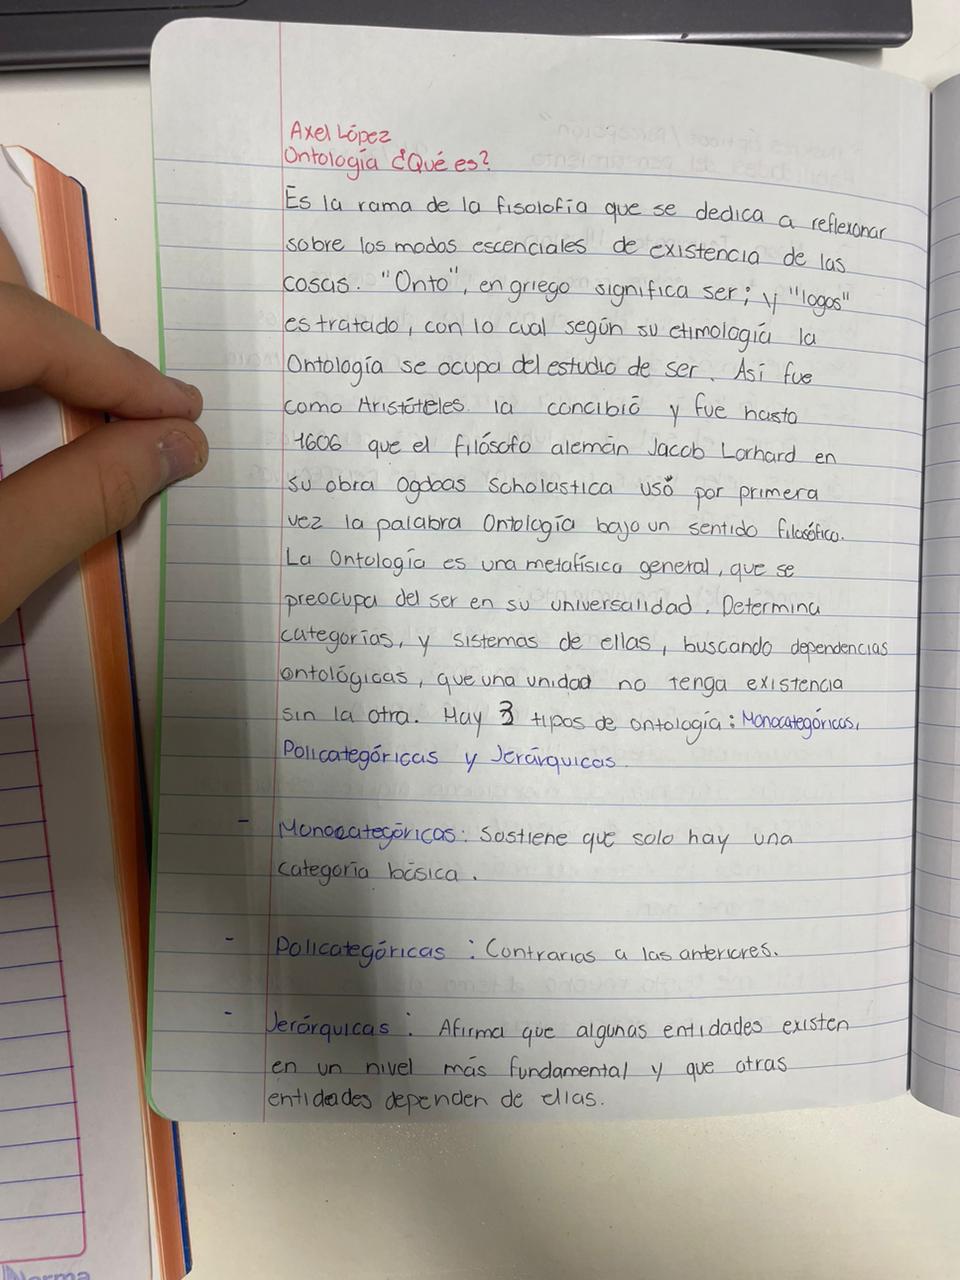 Axel López
Ontología ¿Qué es?
Es la rama de la fisolofía que se dedica a reflexonar
sobre los modos escenciales de existencia de las
cosas. "Onto", en griego significa ser; y "logos"
es tratado, con lo cual según su etimología la
Ontología se ocupa del estudio de ser. Así fue
como Aristóteles la concibió y fue hasta
1606 que el filósofo alemán Jacob Lorhard en
su obra Ogdoas Scholastica usó por primera
vez la palabra Ontología bajo un sentido filosófico.
La Ontología es una metafísica general, que se
preocupa del ser en su universalidad. Determina
categorías, y sistemas de ellas, buscando dependencias
ontológicas, que una unidad no tenga existencia
sin la otra. Hay 3 tipos de ontología: Monocategóricas,
Policategóricas y Jerárquicas.
- Monocategóricas: Sostiene que solo hay una
categoría básica.
- Policategóricas: Contrarias a las anteriores.
- Jerárquicas: Afirma que algunas entidades existen
en un nivel más fundamental y que otras
entidades dependen de ellas.
Norma